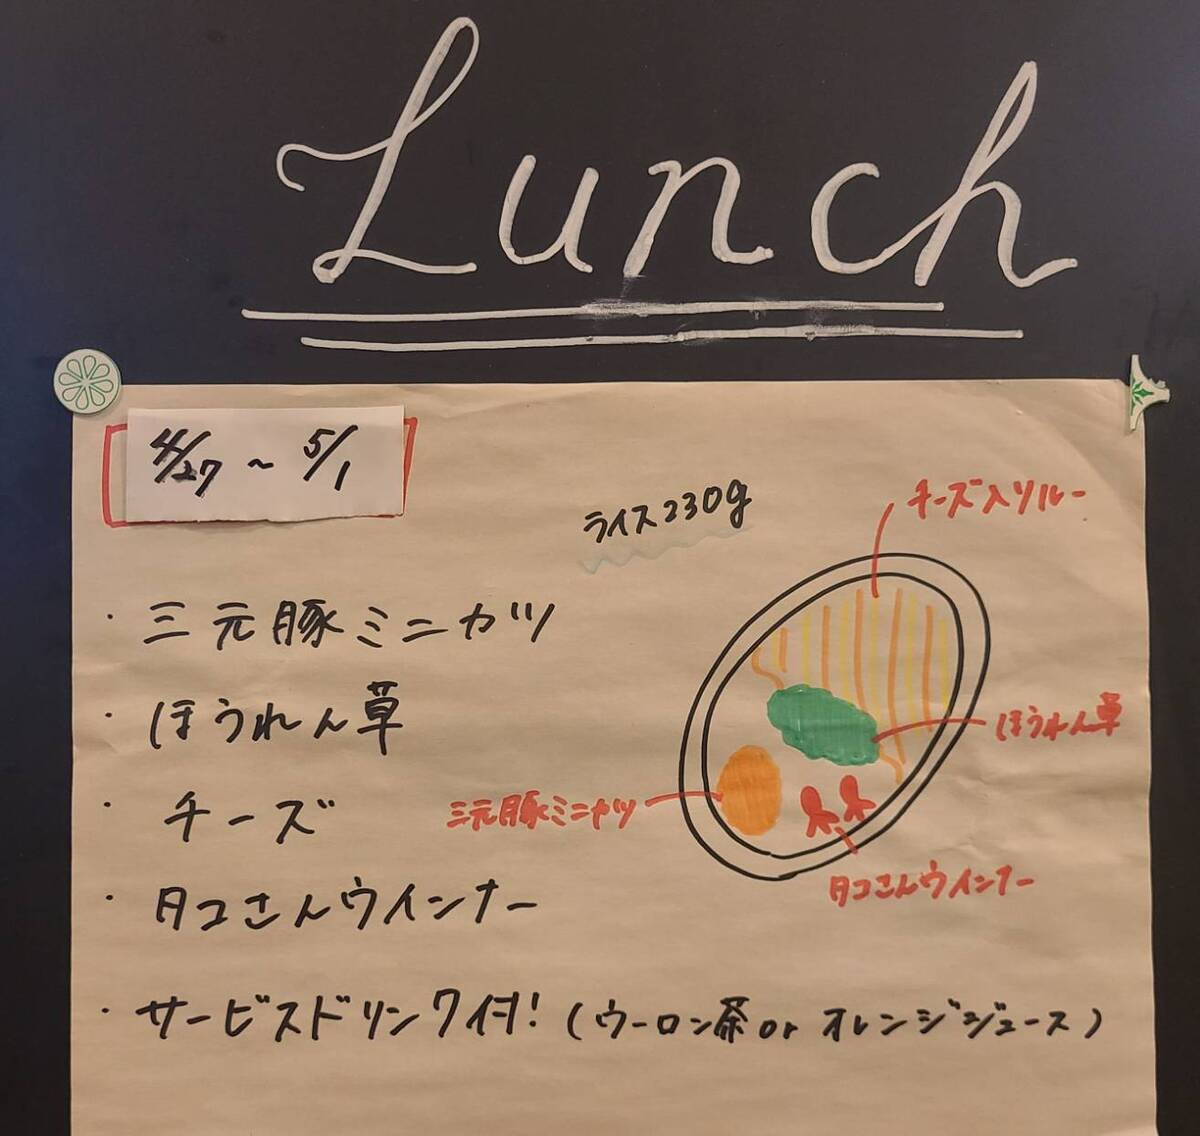 Lunch
4/27 ~ 5/1
ライス230g
チーズ入りルー
・三元豚ミニカツ
・ほうれん草
ほうれん草
・チーズ
三元豚ミニカツ
タコさんウインナー
・タコさんウインナー
・サービスドリンク付! (ウーロン茶 or オレンジジュース)